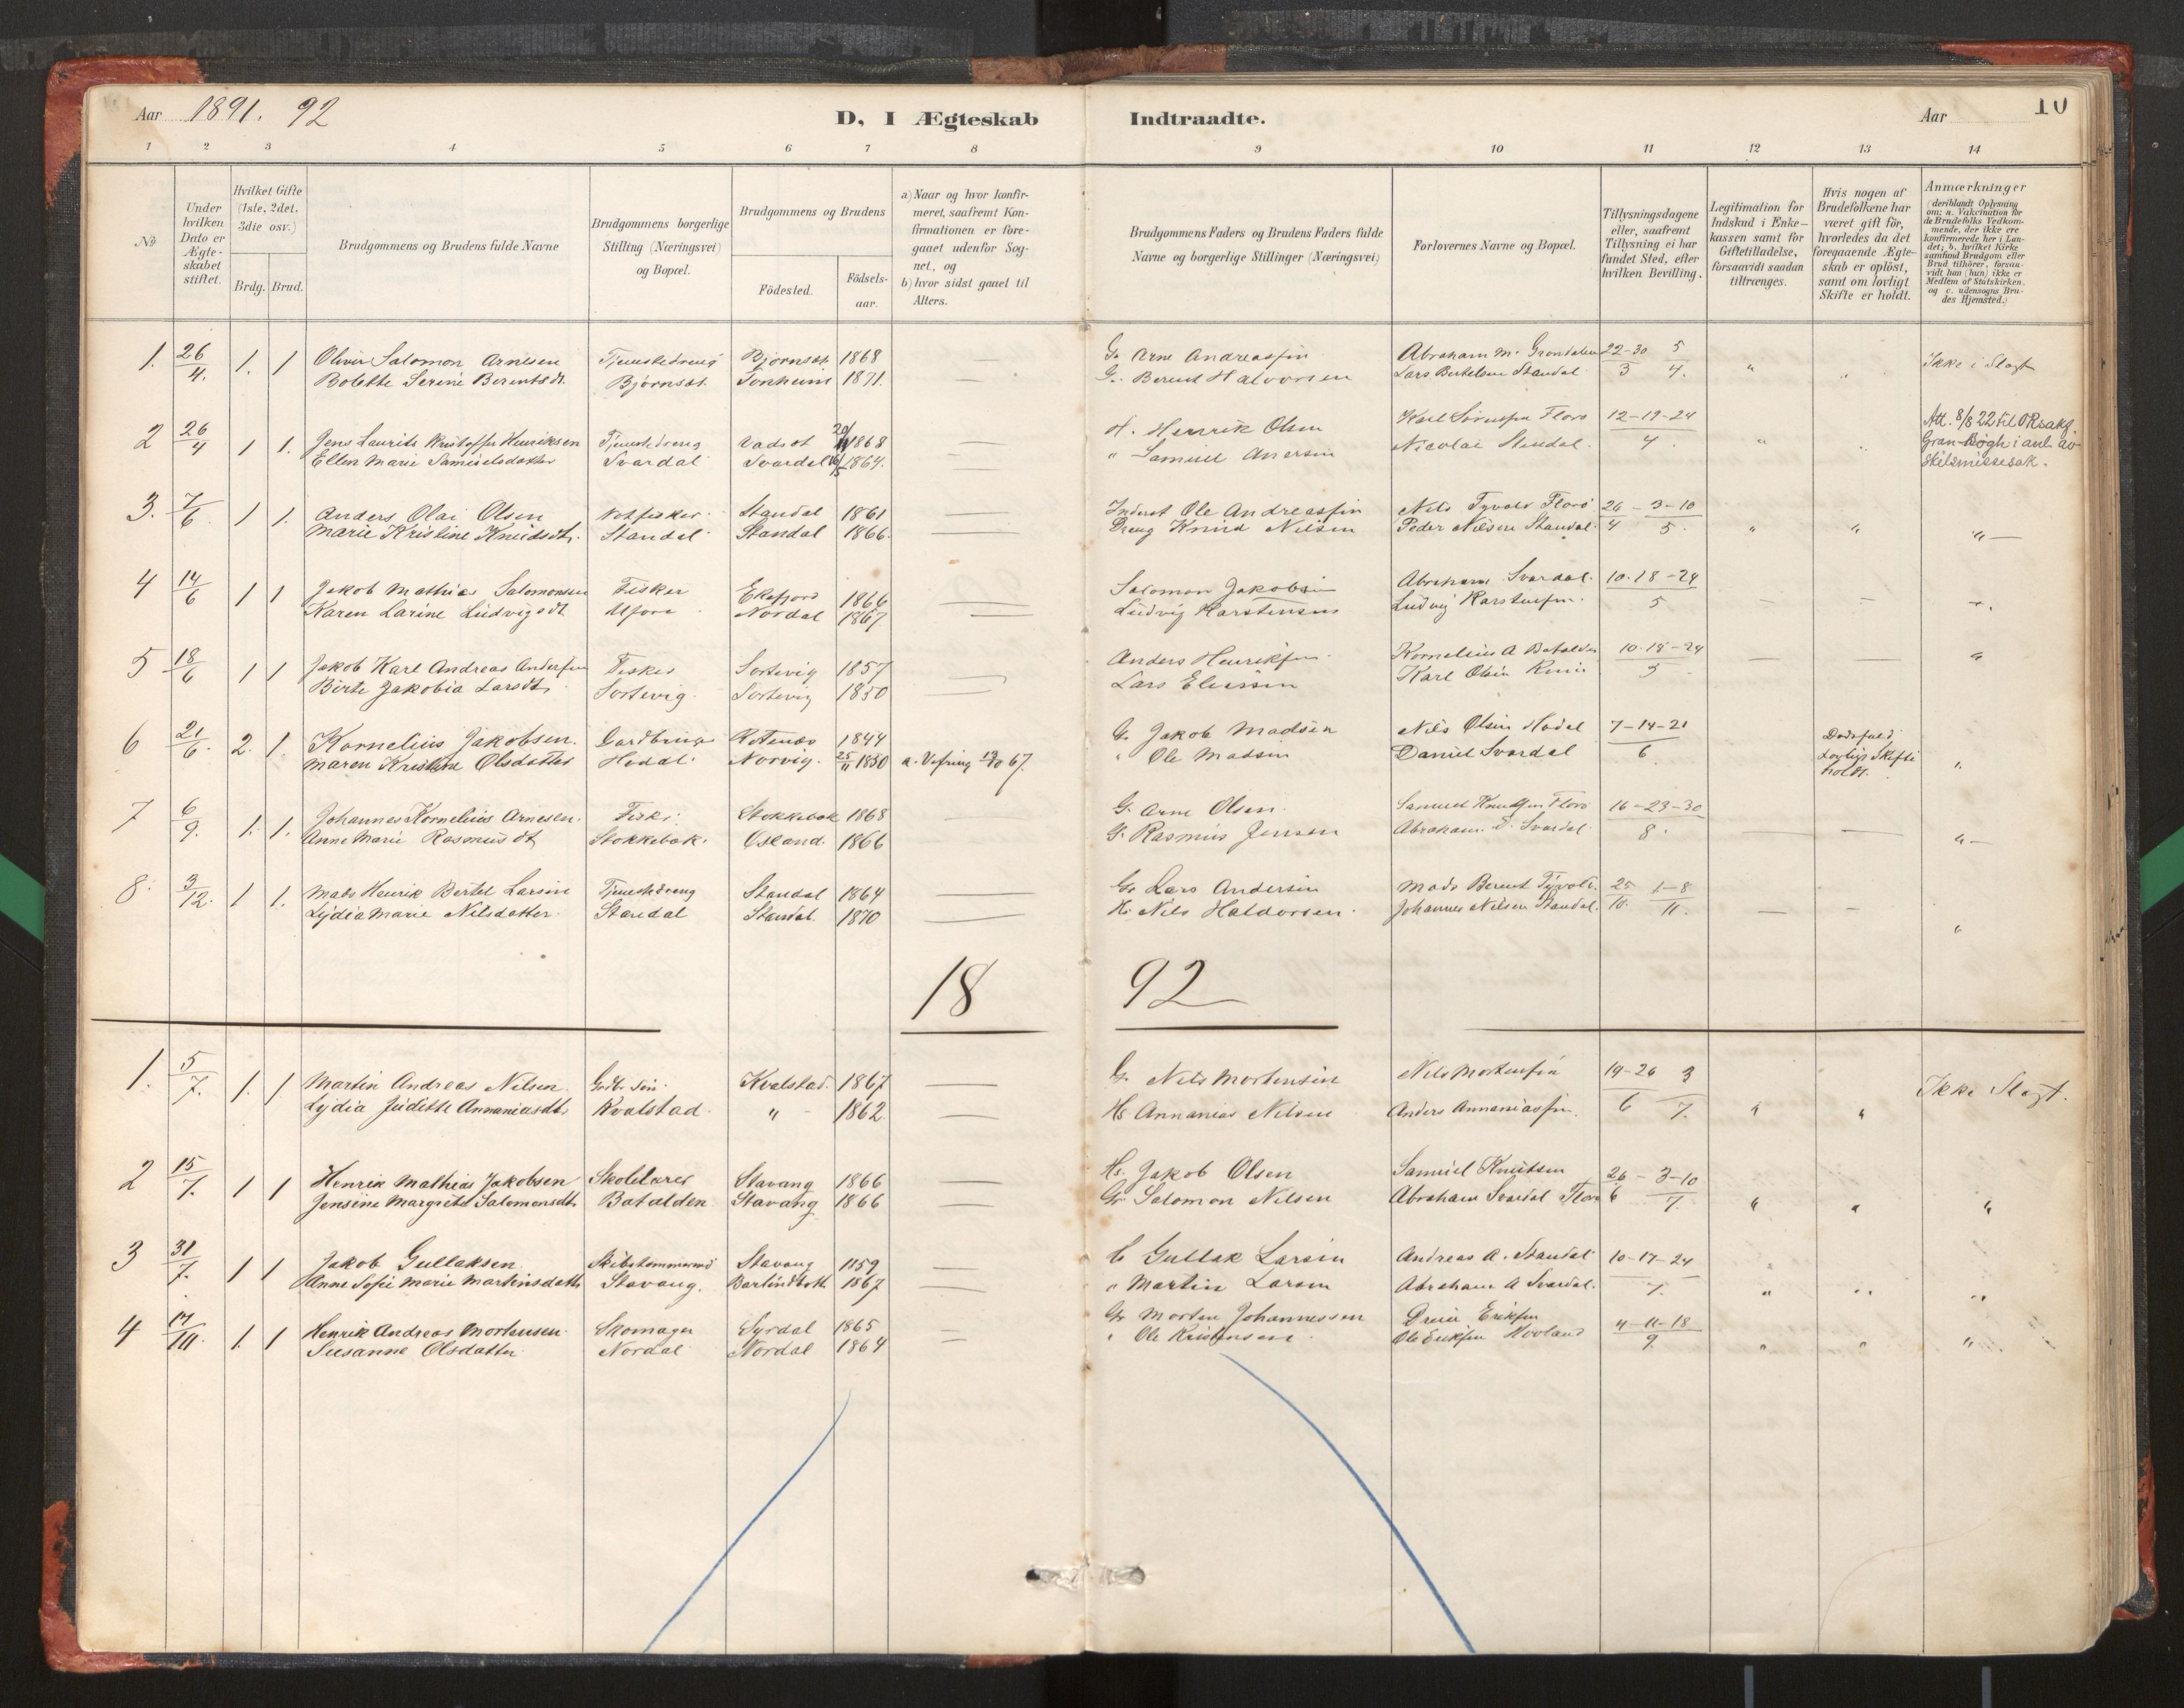 Aar 1891. 92
D, I Ægteskab Indtraadte.
Aar
10
1 2 3 4 5 6 7 8 9 10 11 12 13 14
No
Under hvilken Dato er Ægte-skabet stiftet.
Hvilket Gifte (1ste, 2det, 3die osv.)
Brdg. Brud.
Brudgommens og Brudens fulde Navne
Brudgommens borgerlige Stilling (Næringsvei) og Bopæl.
Brudgommens og Brudens
Födested.
Födsels-aar.
a) Naar og hvor konfir-meret, saafremt Kon-firmationen er fore-gaaet udenfor Sog-net, og
b) hvor sidst gaaet til Alters.
Brudgommens Faders og Brudens Faders fulde Navne og borgerlige Stillinger (Næringsvei)
Forlovernes Navne og Bopæl.
Tillysningsdagene eller, saafremt Tillysning ei har fundet Sted, efter hvilken Bevilling.
Legitimation for Indskud i Enke-kassen samt for Giftetilladelse, forsaavidt saadan tiltrænges.
Hvis nogen af Brudefolkene har været gift för, hvorledes da det foregaaende Ægte-skab er oplöst, samt om lovligt Skifte er holdt.
Anmærkninger (deriblandt Oplysning om: a. Vakcination for de Brudefolks Vedkom-mende, der ikke ere konfirmerede her i Lan-det; b. hvilket Kirke samfund Brudgom eller Brud tilhörer, forsaa-vidt han (hun) ikke er Medlem af Statskirken. og c. udensogns Bru-des Hjemsted.)
1. 26/4. 1. 1 Oliver Salomon Arnesen Tjenestedreng Bjørnset 1868 — G. Arne Andreassen Abraham M. Grøndalen 22-30 5 Ikke i Slægt
Bolette Serine Berentsdt. Bjørnset. Tonheim 1871. — G. Berent Halvorsen Lars Bertelsen Standal 3 4. "
2 26/4 1 1. Jens Laurits Kristoffer Henriksen Tjenestedreng Vadset 1868 — H. Henrik Olsen Karl Sørensen Florø 12-19-24 Att. 8/8 22 til ORsakf.
Ellen Marie Samuelsdatter Svardal Svardal 1864. — " Samuel Andersen Nicolai Stendal. 4 " Gran-Bøgh i anl. av
Skilsmissesak.
3. 7/6 1 1. Anders Olai Olsen Notfisker. Standal 1861 — Inderst Ole Andreassen Nils Tyvold Florø 26 - 3-10
Marie Kristine Knudsdt. Standal Standal 1866. — Dreng Knud Nilsen Peder Nilsen Standal. 4 5. " " "—
4 14/6 1 1 Jakob Mathias Salomonsen Fisker Ekefjord 1866 Salomon Jakobsen Abraham Svardal. 10-18-24
Karen Larine Ludvigsdt. Ufore Nordal 1867 — Ludvig Karstensen Ludvig Karstensen. 5 — — —.
5 18/6 1 1 Jakob Karl Andreas Andersen Fisker Sortevig 1857 Anders Henriksen. Kornelius A Batalden 10-18-24
Birte Jakobia Larsdt. Sortevig. Sortevig 1850 — Lars Eliassen Karl Olsen 5 — — "
6 21/6. 2. 1. Kornelius Jakobsen. Gardbruger 1844 G. Jakob Madsen Nils Olsen Hodal 7-14-21 Dødsfald
Maren Kristine Olsdatter Hodal. Norvig. 25/11 1850 a. Vefring 13/10 67. " Ole Madsen Daniel Svardal 6 Lovligt Skifte
holdt. "
7 6/9. 1. 1. Johannes Kornelius Arnesen. Fisker. Stokkebak 1868 — G. Arne Olsen. Samuel Knudsen Florø 16-23-30
Anne Marie Rasmusdt. Stokkebak. Osland. 1866 — G. Rasmus Jensen Abraham S. Svardal 8. — — "—
8. 3/12. 1 1. Mads Henrik Bertel Larsen Tjenestedreng Standal 1864 — G. Lars Andersen Mads Berent Tyvold. 25 1-8
Lydia Marie Nilsdatter. Standal Standal. 1870 — H. Nils Haldorsen. Johannes Nilsen Standal. 10. 11. — — "
18 92
1. 5/7. 1. 1 Martin Andreas Nilsen. Gdbr. Søn. Kvalstad. 1867 — G. Nils Mortensen Nils Mortensen 19-26 3 Ikke Slægt.
Lydia Judithe Annaniasdt. Kvalstad. " 1862 — Hs. Annanias Nilsen Anders Annaniassen. 6 7. " "
2 15/7. 1 1 Henrik Mathias Jakobsen Skolelærer Stavang 1866 — Hs. Jakob Olsen Samuel Knutsen 26 - 3-10
Jensine Margrete Salomonsdt. Batalden Stavang 1866 — Gr. Salomon Nilsen Abraham Svardal Florø 6 7. " " "
3 31/7. 1 1 Jakob Gullaksen Skibstømmermd Stavang 1859 — Gullak Larsen Andreas A. Standal 10-17-24
Anne Sofie Marie Martinsdatter Stavang. 1867 — " Martin Larsen Abraham A Svardal. 7. " " "
4 14/10. 1. 1 Henrik Andreas Mortensen. Skomager Syrdal 1865 — Gr Morten Johannessen Eriksen 4-11-18
Susanne Olsdatter. Nordal Nordal 1864 — " Ole Kristensen. Ole Eriksen Hovland 9. " " "